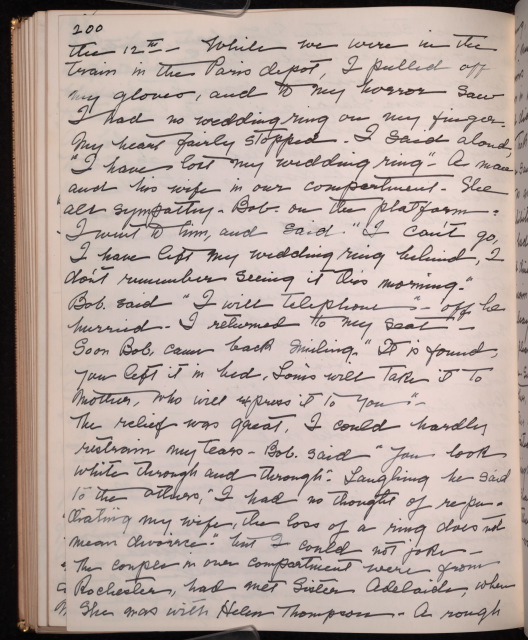 200
the 12th - While we were in the
train in the Paris depot, I pulled off
my gloves, and to my horror saw
I had no wedding ring on my finger.
My heart fairly stopped - I said aloud,
"I have lost my wedding ring". A man
and his wife in our compartment - She
all sympathy - Bob. on the platform -
I went to him, and said "I can't go,
I have left my wedding ring behind, I
don't remember seeing it this morning."
Bob. said "I will telephone" - off he
hurried - I returned to my seat -
Soon Bob. came back smiling. "It is found,
you left it in bed, Louis will take it to
Mother, who will express it to you" -
The relief was great, I could hardly
restrain my tears - Bob. said "you look
white through and through". Laughing he said
to the others, "I had no thought of repu-
diating my wife, the loss of a ring does not
mean divorce." but I could not joke -
The couple in our compartment were from
Rochester, had met Sister Adelaide, when
She was with Helen Thompson - A rough